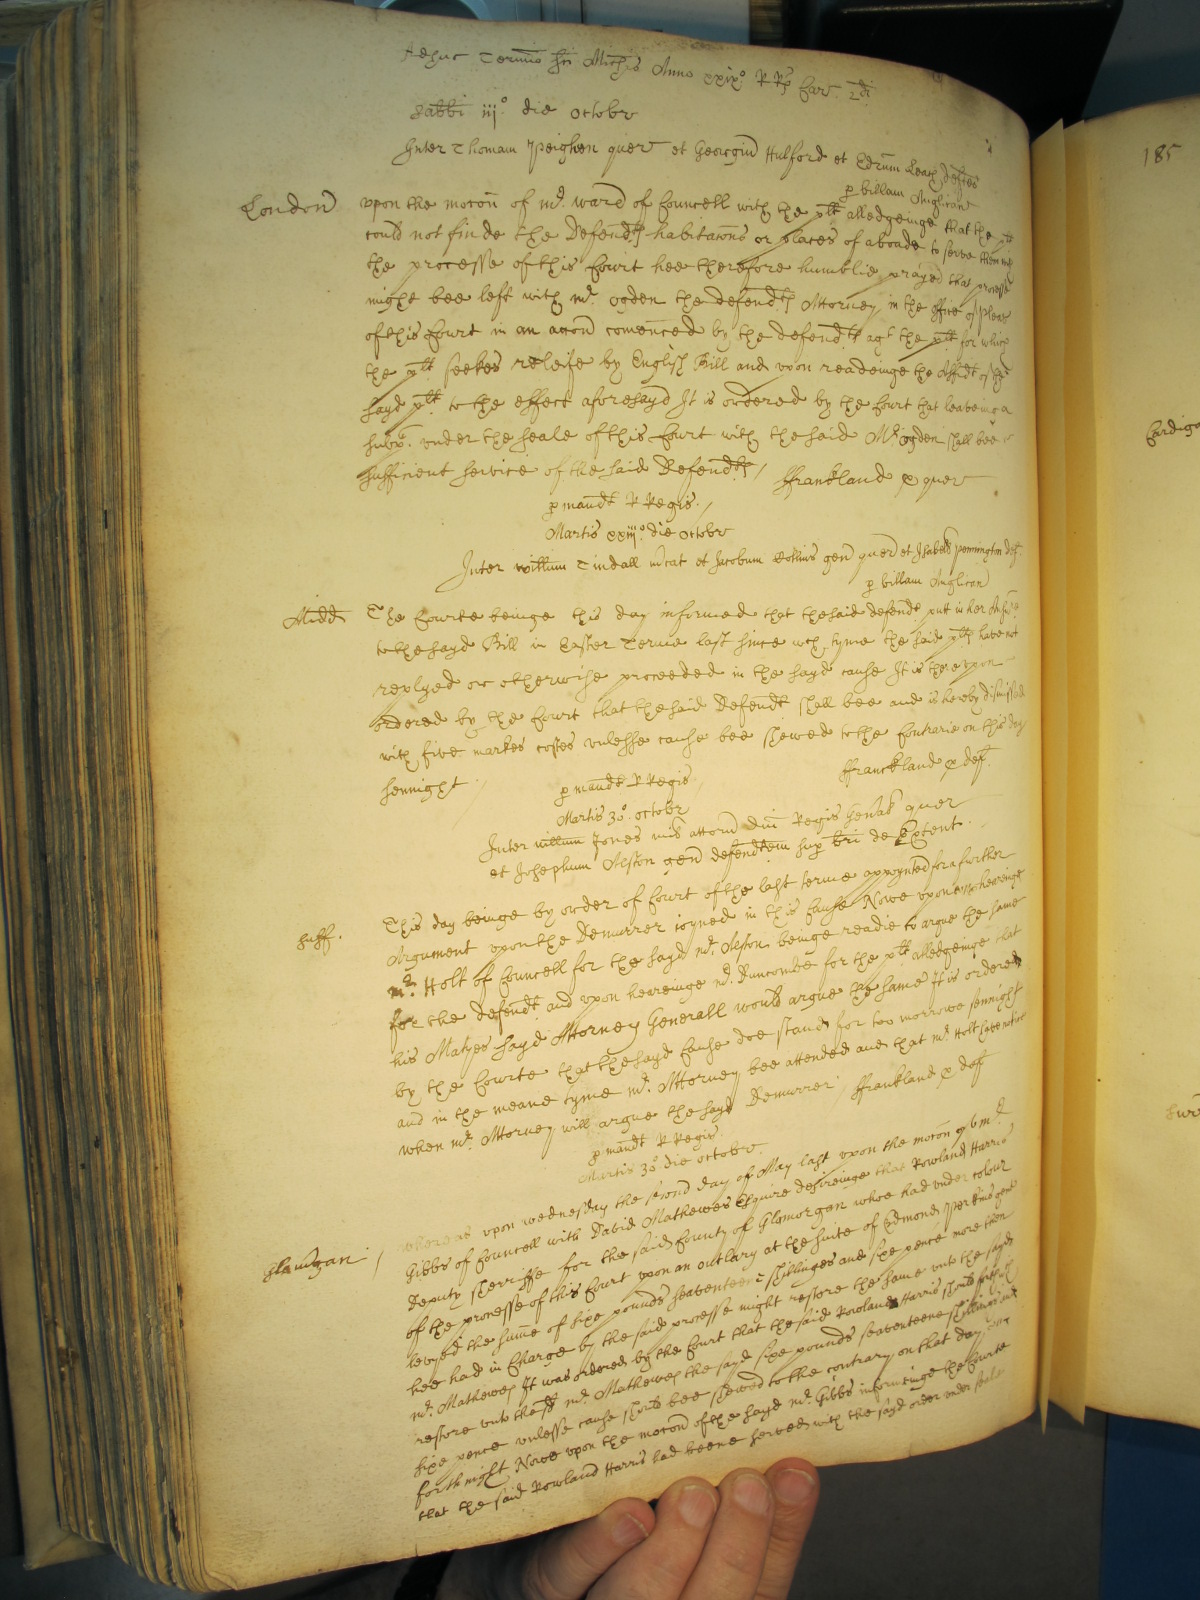 Adhuc Termio Sci Michis Anno xxix° R Rs Car 2di
Sabbi iij° die Octobr
Inter Thomam Peighen quer et Georgiu Hulford et Edrum Leach deftes
p billam Anglican
London
upon the mocon of mr. Ward of Councell with the plt alledgeinge that the plt
could not finde the Defendts habitacons or places of aboade to serve them with
the processe of this Court hee therefore humblie prayed that processe
might bee left with mr. Ogden the defendts Attorney in the office of pleas
of this Court in an accon comenced by the defendts agt the plt for which
the plt seekes releife by English Bill and upon readeinge the Affidt of the
sayd plt to the effect aforesayd It is ordered by the Court that leaveing a
subp. under the seale of this Court with the said Mr. Ogden shall bee
sufficient service of the said Defendts / ffrankland p quer
p mandt R Regis /
Martis xxiij° die Octobr
Inter Willum Tindall et Jacobum gen quer et Isabell Pennington def
p billam Anglican
Midd
The Courte beinge this day informed that the said defendt putt in her Answer
to the sayd Bill in Easter Terme last since wch tyme the said plts have not
replyed or otherwise proceeded in the sayd cause It is thereupon
ordered by the Court that the said Defendt shall bee and is hereby dismissed
with five markes costes unlesse cause bee shewed to the Contrarie on this day
sennight
ffranckland p def
p mandt R Regis
Martis 30° Octobr
Inter Willum Jones mil attorn Dni Regis genlem quer
et Josephum Alston gen defendtem sup bri de Extent.
Suff.
This day beinge by order of Court of the last terme appoynted for a further
Argument upon the Demurrer ioyned in this Cause Nowe upon hearinge
mr. Holt of Councell for the sayd mr. Alston beinge readie to argue the same
for the defendt and upon heareinge mr. Duncombe for the plt alledgeinge that
his Matyes sayd Attorney Generall would argue the same It is ordered
by the Courte that the sayd Cause doe stand for too morrowe sennight
and in the meane tyme mr. Attorney bee attended and that mr. Holt have notice
when mr. Attorney will argue the sayd Demurrer / ffrankland p def
p mandt R Regis
Martis 30° die Octobr.
Glamgan /
Whereas upon Wednesday the second day of May last upon the mocon of mr.
Gibbs of Councell with David Mathewes Esquire desireinge that Rowland Harris
Deputy Sherriffe for the said County of Glomorgan whoe had under colour
of the processe of this Court upon an outlary at the suite of Edmond Perkins gent
levyed the summe of sixe pounds seaventeene shillinges and sixe pence more then
hee had in Charge by the said processe might restore the same unto the sayd
mr. Mathewes It was ordered by the Court that the said Rowland Harris should forthwith
restore unto the sd mr. Mathewes the sayd sixe pounds seaventeene shillings and
sixe pence unlesse cause should bee shewed to the contrary on that day
forthnight Nowe upon the mocon of the sayd mr. Gibbs informeinge the Courte
that the said Rowland Harris had beene served with the sayd order under seale
185
Cardiga